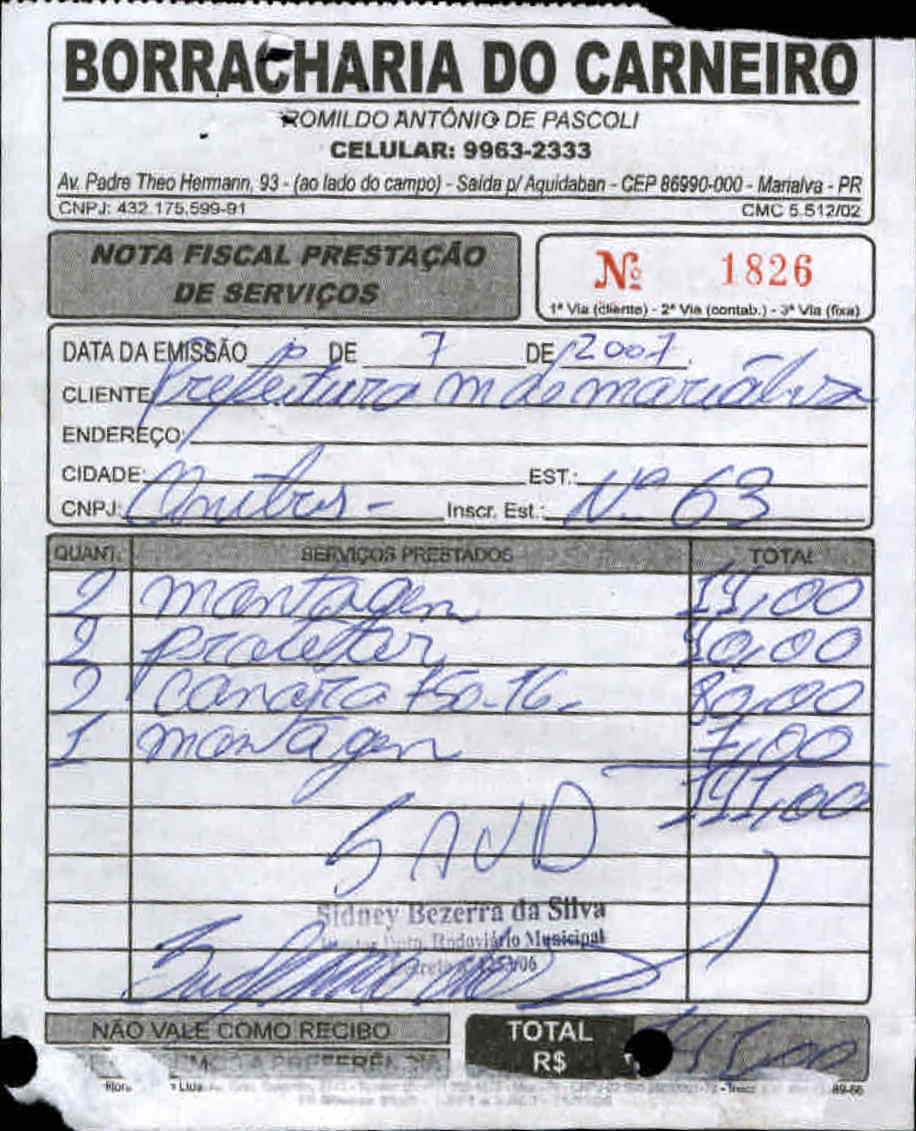 BORRACHARIA DO CARNEIRO
ROMILDO ANTÔNIO DE PASCOLI
CELULAR: 9963-2333
Av. Padre Theo Hermann, 93 - (ao lado do campo) - Saída p/ Aquidaban - CEP 86990-000 - Marialva - PR
CNPJ: 432.175.599-91 CMC 5.512/02
NOTA FISCAL PRESTAÇÃO
DE SERVIÇOS
Nº 1826
1ª Via (cliente) - 2ª Via (contab.) - 3ª Via (fixa)
DATA DA EMISSÃO DE 7 DE 2007
CLIENTE Prefeitura m de marialva
ENDEREÇO:
CIDADE: EST.:
CNPJ: Onibus - Inscr. Est.: Nº 63
QUANT. SERVIÇOS PRESTADOS TOTAL
2 montagen 14,00
2 protetor 40,00
2 camara 750-16 80,00
1 montagen 7,00
141,00
Sidney Bezerra da Silva
Dpto. Rodoviário Municipal
Decreto nº 1253/06
NÃO VALE COMO RECIBO
TOTAL
R$ 141,00